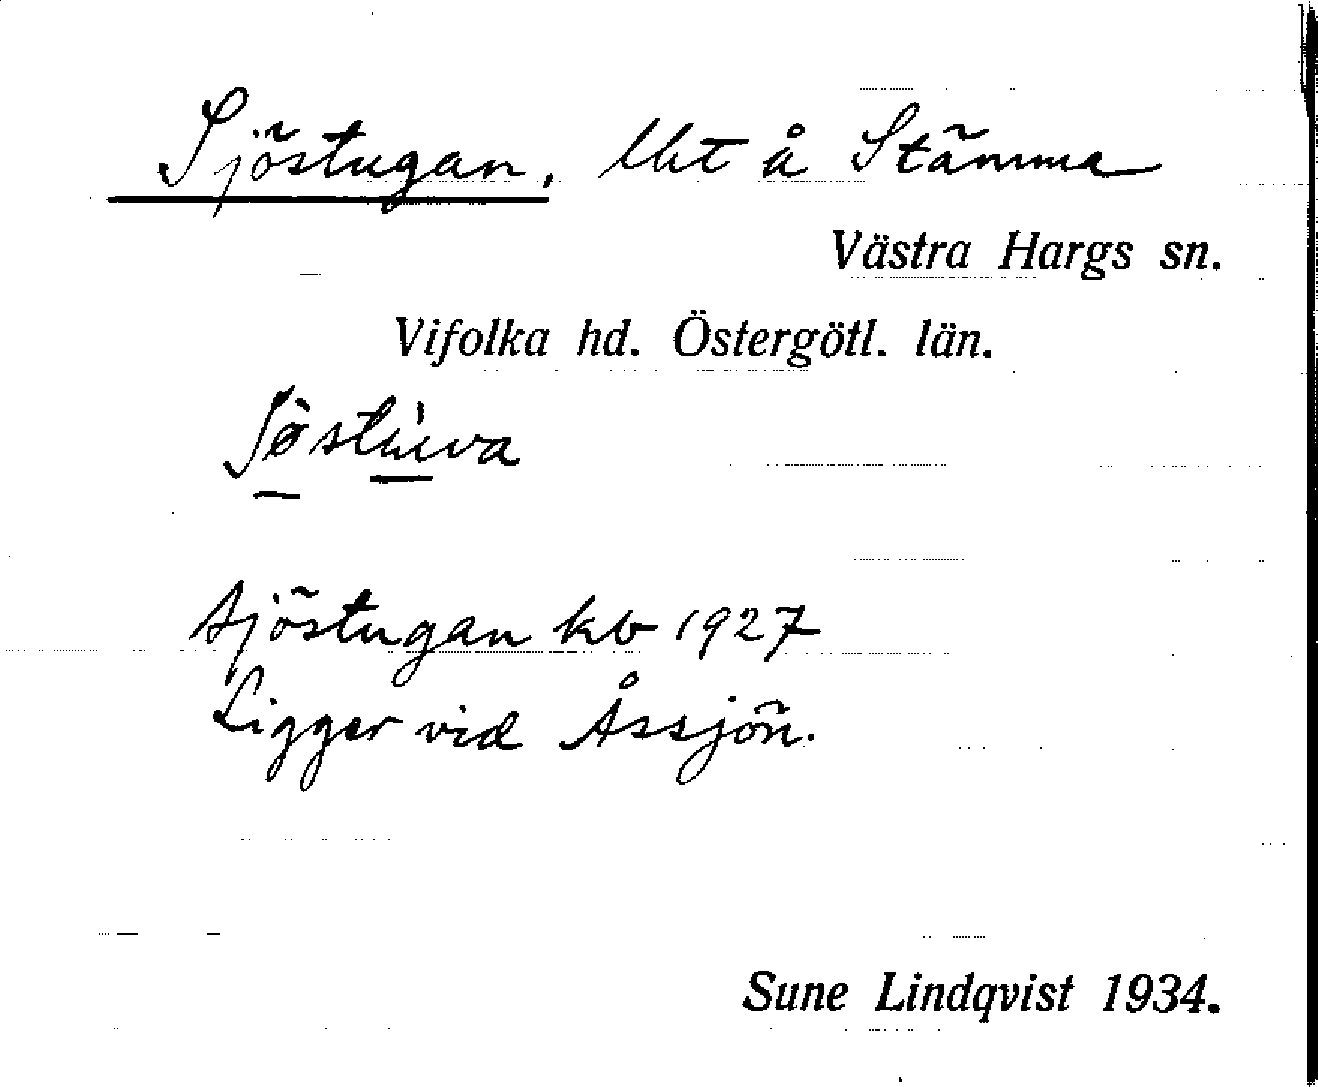 Sjöstugan, lht å Stämma
Västra Hargs sn.
Vifolka hd. Östergötl. län.
sjöstugan kb 1927
Ligger vid Åssjön.
Sune Lindqvist 1934.